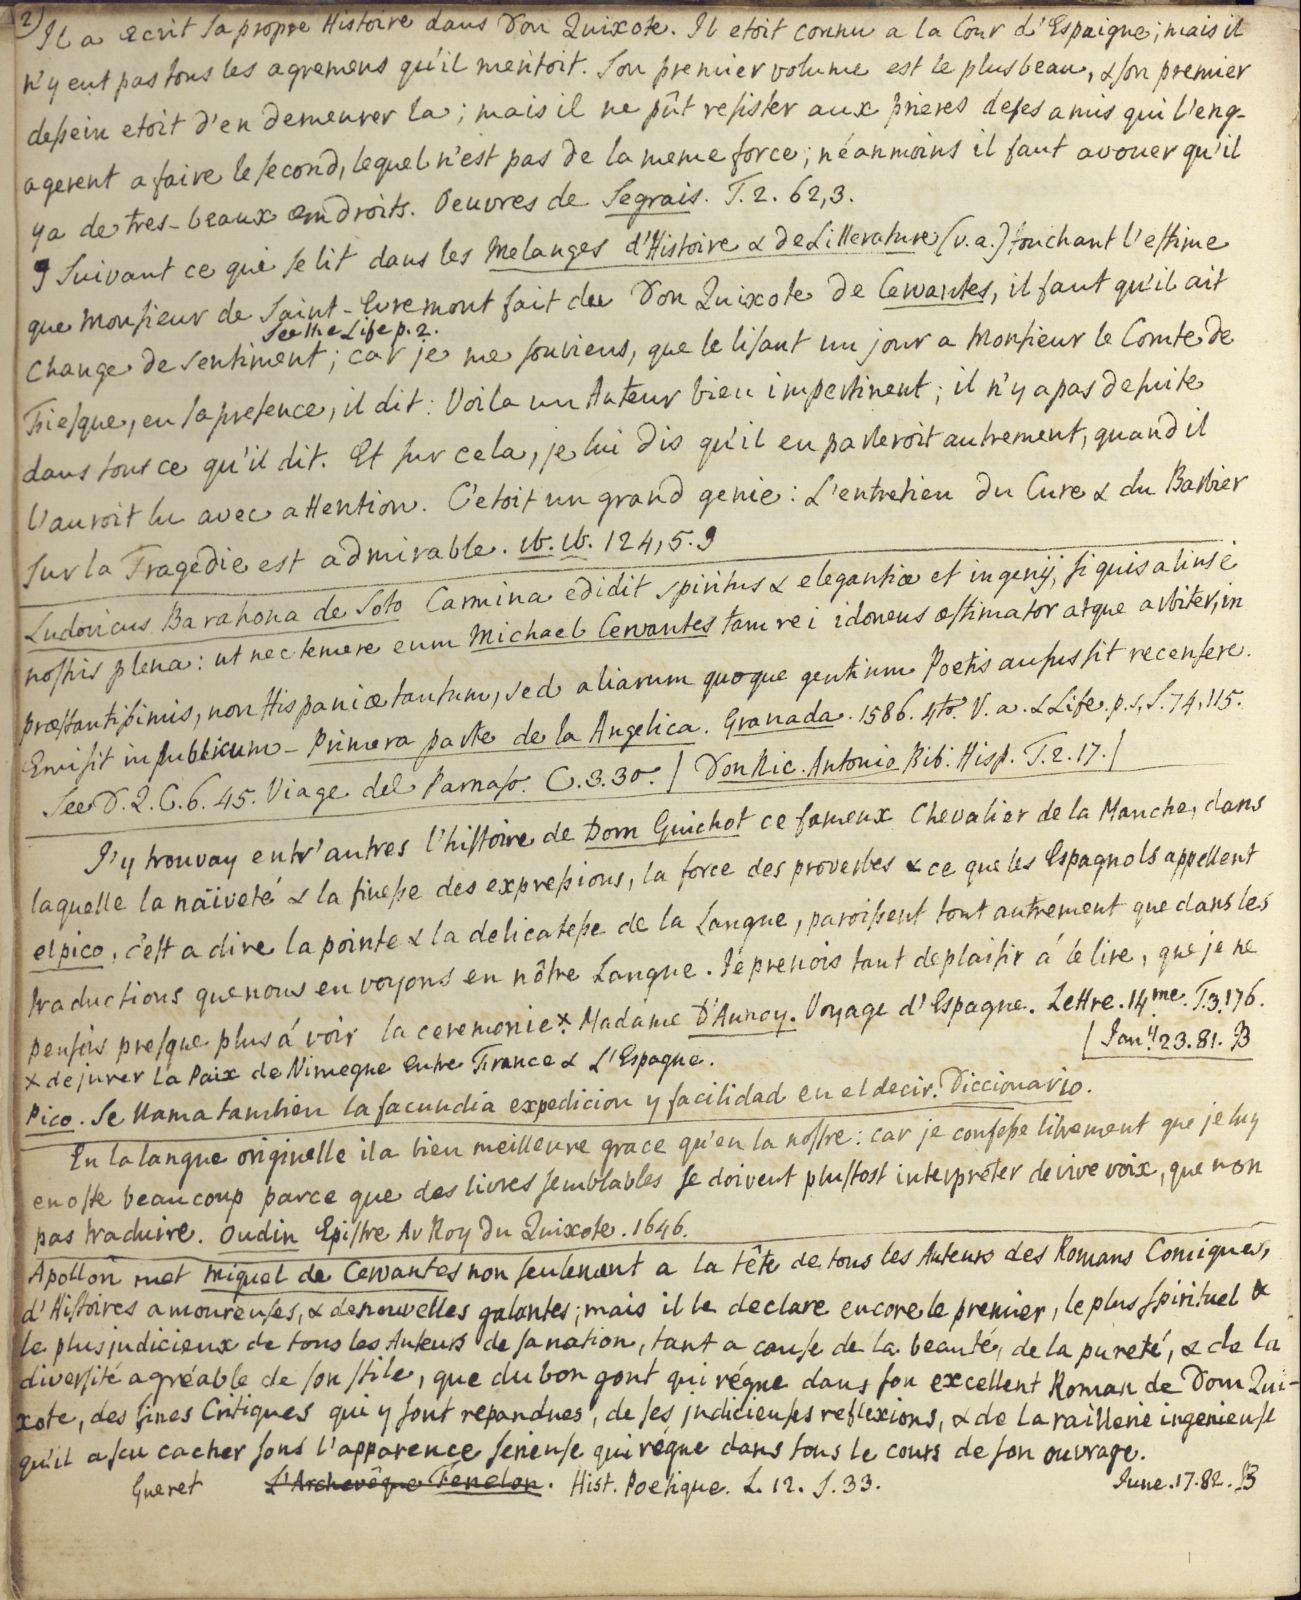 2) Il a ecrit sa propre Histoire dans Don Quixote. Il etoit connu a la Cour d'Espaigne; mais il
n'y eut pas tous les agremens qu'il meritoit. Son premier volume est le plus beau, & son premier
dessein etoit d'en demeurer la; mais il ne pût resister aux prieres de ses amis qui l'eng-
agerent a faire le second, lequel n'est pas de la meme force; néanmoins il faut avouer qu'il
y a de tres-beaux endroits. Oeuvres de Segrais. T. 2. 62,3.
Suivant ce qui se lit dans les Melanges d'Histoire & de Litterature (v. a.) touchant l'estime
que Monsieur de Saint-Evremont fait de Don Quixote de Cervantes, il faut qu'il ait
See the Life p. 2.
change de sentiment; car je me souviens, que le lisant un jour a Monsieur le Comte de
Fiesque, en sa presence, il dit: Voila un Auteur bien impertinent; il n'y a pas de suite
dans tout ce qu'il dit. Et sur cela, je lui dis qu'il en parleroit autrement, quand il
l'auroit lu avec attention. C'etoit un grand genie: L'entretien du Cure & du Barbier
sur la Tragedie est admirable. ib. ib. 124,5.
Ludovicus Barahona de Soto Carmina edidit spiritus & elegantiæ et ingenij, si quis alius è
nostris plena: ut nec temere eum Michael Cervantes tam rei idoneus æstimator atque arbiter, in
præstantissimis, non Hispaniæ tantum, sed aliarum quoque gentium Poetis ausus sit recensere.
Emisit in publicum - Primera parte de la Angelica. Granada. 1586. 4to. V. a. & Life. p. s, S. 74, 115.
See D. Q. C. 6. 45. Viage del Parnaso. C. 3. 30. / Don Nic. Antonio Bib. Hisp. T. 2. 17. /
J'y trouvay entr'autres l'histoire de Dom Guichot ce fameux Chevalier de la Manche, dans
laquelle la näiveté & la finesse des expressions, la force des proverbes & ce que les Espagnols appellent
el pico, c'est a dire la pointe & la delicatesse de la Langue, paroissent tout autrement que dans les
traductions que nous en voyons en nôtre Langue. Je prenois tant de plaisir á le lire, que je ne
pensois presque plus á voir la ceremonie x. Madame D'Aunoy. Voyage d'Espagne. Lettre. 14me. T. 3. 176.
x de jurer la Paix de Nimegue entre France & L'Espagne.
/ Jany. 23. 81. B
Pico. Se llama tambien la facundia expedicion y facilidad en el decir. Diccionario.
En la langue originelle il a bien meilleure grace qu'en la nostre: car je confesse librement que je luy
en oste beaucoup parce que des livres semblables se doivent plustost interpréter de vive voix, que non
pas traduire. Oudin Epistre Au Roy du Quixote. 1646.
Apollon met Miguel de Cervantes non seulement a la tête de tous les Auteurs des Romans Comiques,
d'Histoires amoureuses, & de nouvelles galantes; mais il le declare encore le premier, le plus spirituel &
le plus judicieux de tous les Auteurs de sa nation, tant a cause de la beauté, de la pureté, & de la
diversité agréable de son stile, que du bon gout qui régne dans son excellent Roman de Dom Qui-
xote, des fines Critiques qui y sont repandues, de ses judicieuses reflexions, & de la raillerie ingenieuse
qu'il a sçu cacher sous l'apparence serieuse qui régne dans tous le cours de son ouvrage.
Gueret L'Archevêque Fénelon. Hist. Poetique. L. 12. S. 33. June. 17. 82. B